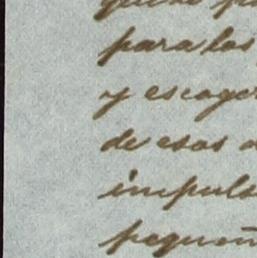 para los
y escoger
de esos
impuls
pequeñ